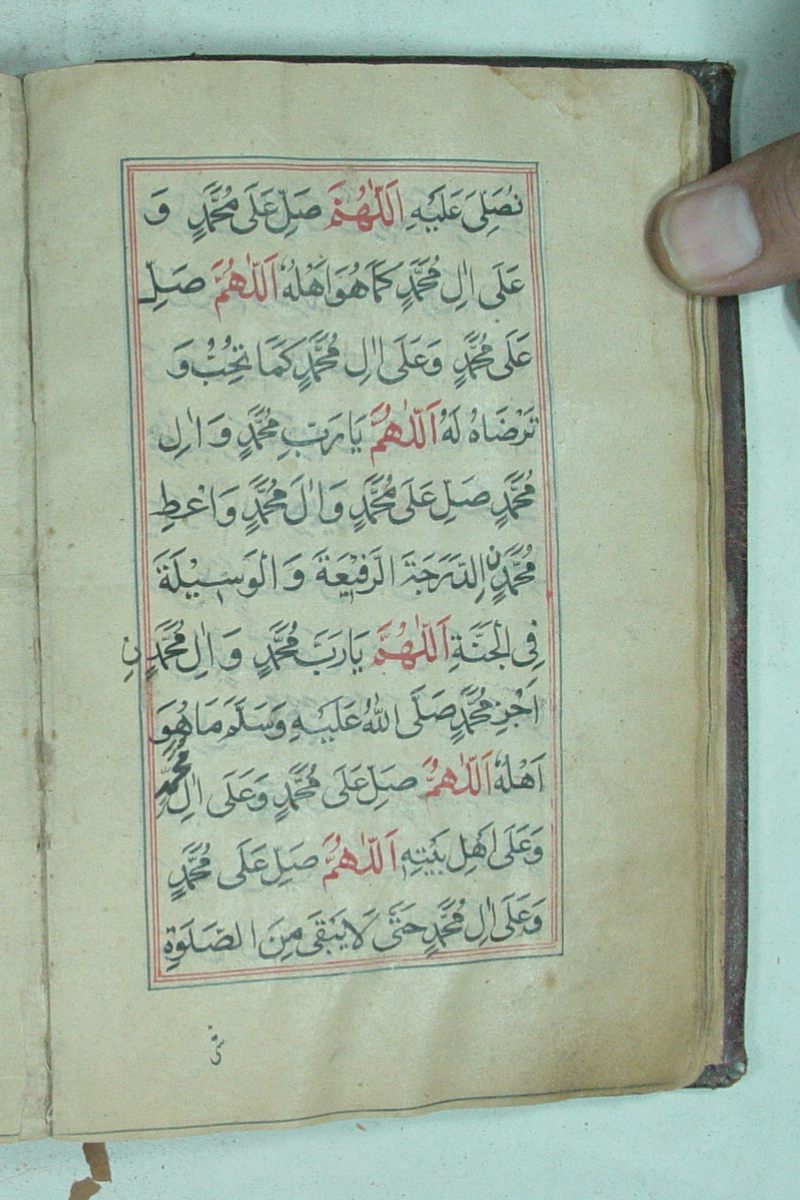 نُصَلِّىَ عَلَيْهِ اَللّٰهُمَّ صَلِّ عَلَى مُحَمَّدٍ وَ
عَلَى اٰلِ مُحَمَّدٍ كَمَا هُوَ اَهْلُهُ اَللّٰهُمَّ صَلِّ
عَلَى مُحَمَّدٍ وَعَلَى اٰلِ مُحَمَّدٍ كَمَا تُحِبُّ وَ
تَرْضَاهُ لَهُ اَللّٰهُمَّ يَا رَبِّ مُحَمَّدٍ وَ اٰلِ
مُحَمَّدٍ صَلِّ عَلَى مُحَمَّدٍ وَ اٰلِ مُحَمَّدٍ وَ اعْطِ
مُحَمَّدٍ نِ الدَّرَجَةَ الرَّفِيْعَةَ وَ الْوَسِيْلَةَ
فِى الْجَنَّةِ اَللّٰهُمَّ يَا رَبَّ مُحَمَّدٍ وَ اٰلِ مُحَمَّدٍ نِ
اَجْزِ مُحَمَّدٍ صَلَّى اللّٰهُ عَلَيْهِ وَسَلَّمَ مَا هُوَ
اَهْلُهُ اَللّٰهُمَّ صَلِّ عَلَى مُحَمَّدٍ وَعَلَى اٰلِ مُحَمَّدٍ
وَعَلَى اَهْلِ بَيْتِهِ اَللّٰهُمَّ صَلِّ عَلَى مُحَمَّدٍ
وَعَلَى اٰلِ مُحَمَّدٍ حَتَّى لَا يَبْقَى مِنَ الصَّلَوةِ